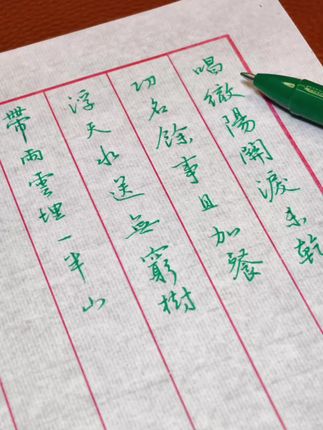 唱徹陽關淚未乾
功名餘事且加餐
浮天水送無窮樹
帶雨雲埋一半山